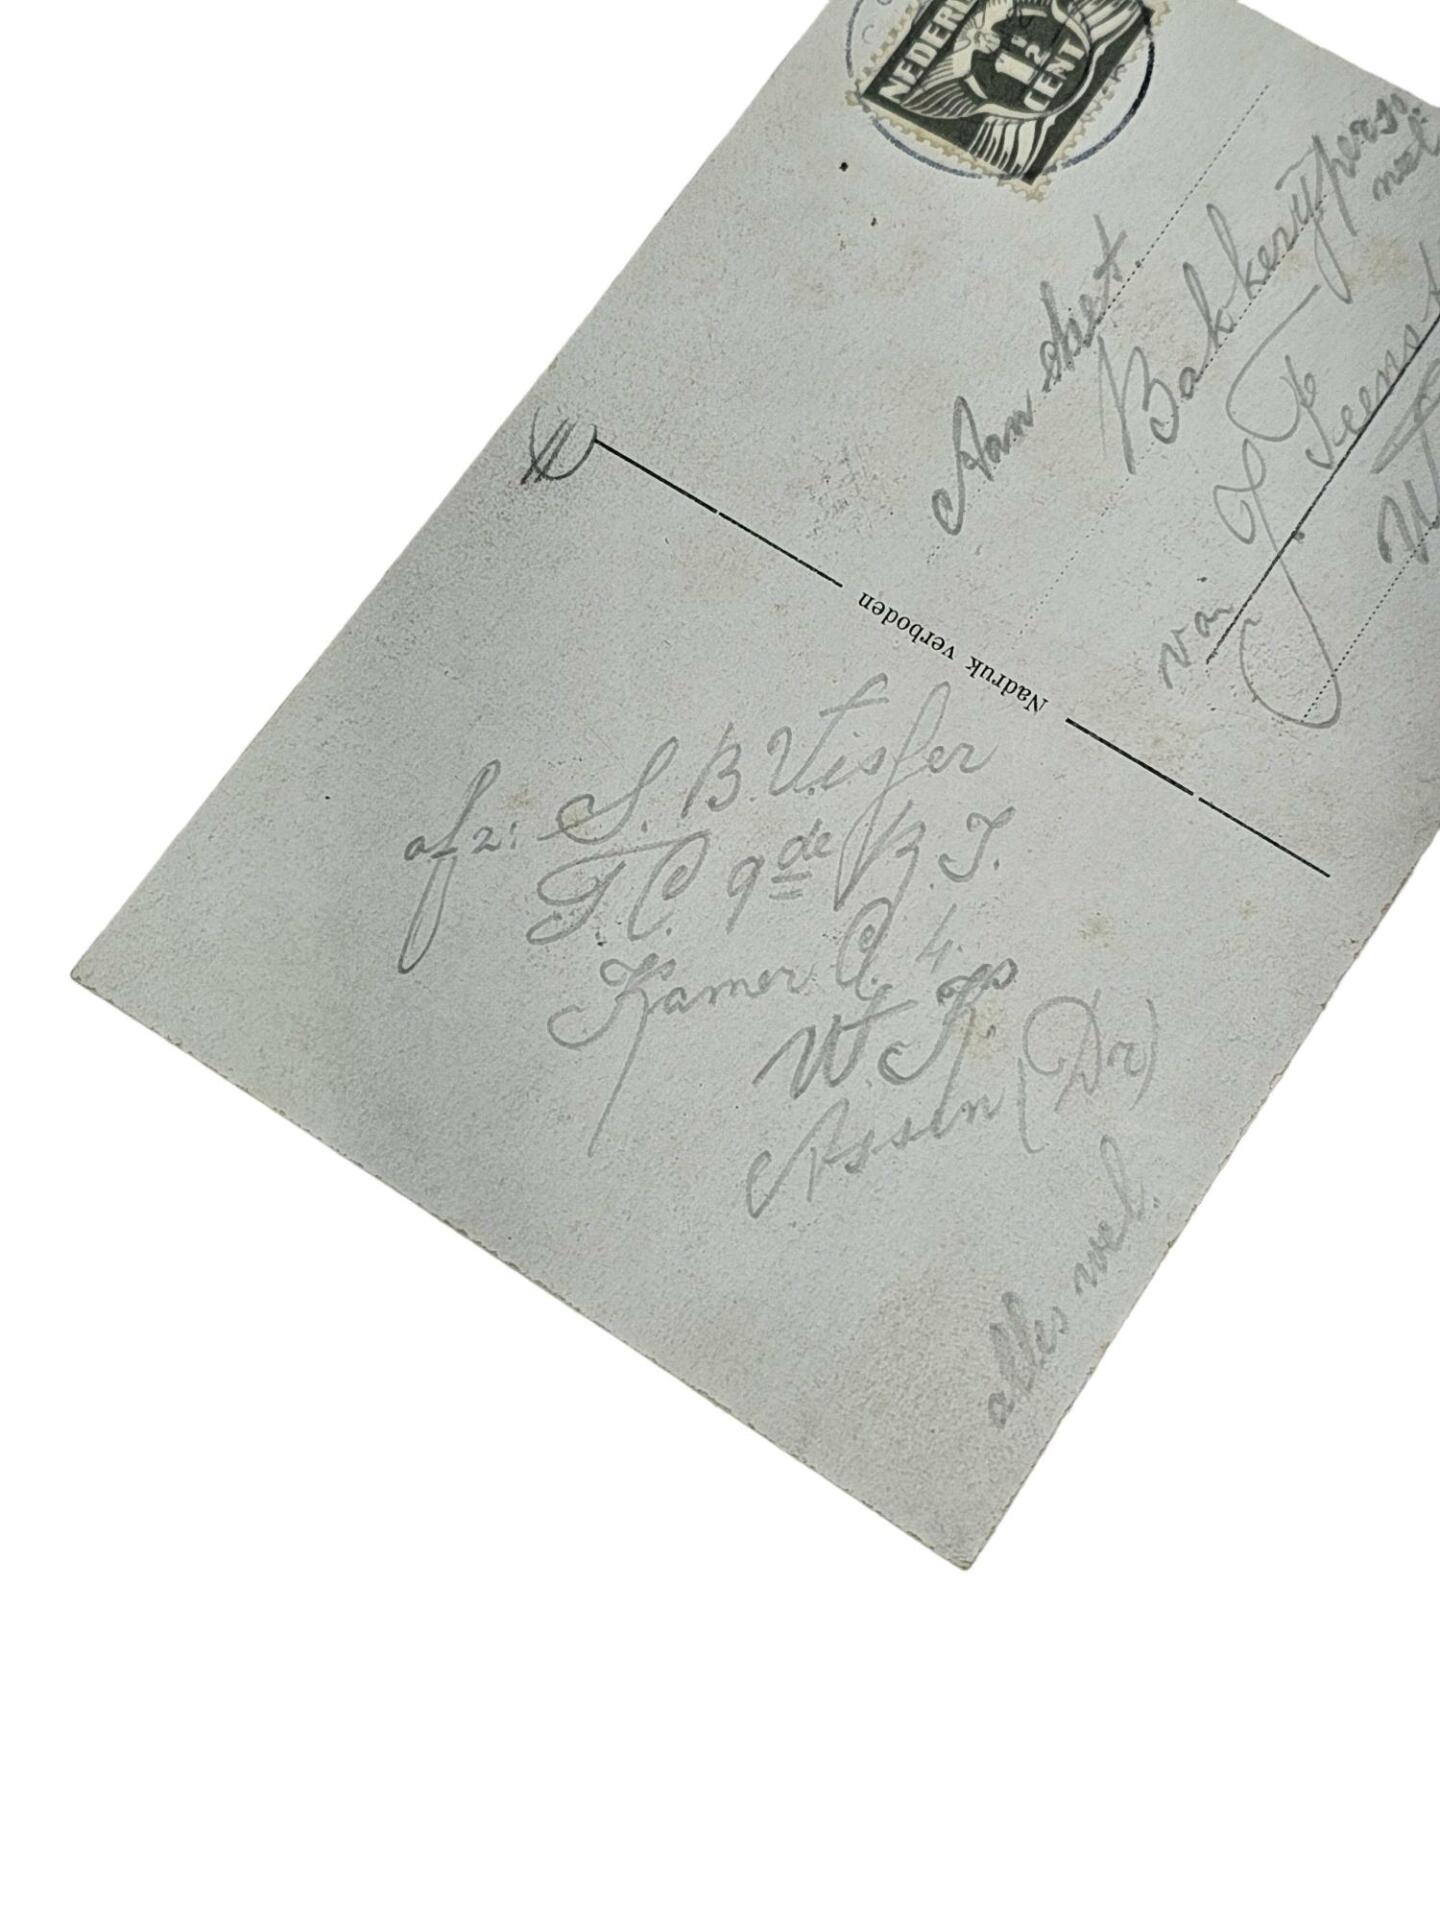 NEDERL
1½
CENT
Aan het
Bakkerypers.
van
Nadruk verboden
afz: S. B. Visser
T.C. 9de B.J.
Kamer A. 4.
W. K.
Assen (Dr)
alles wel.